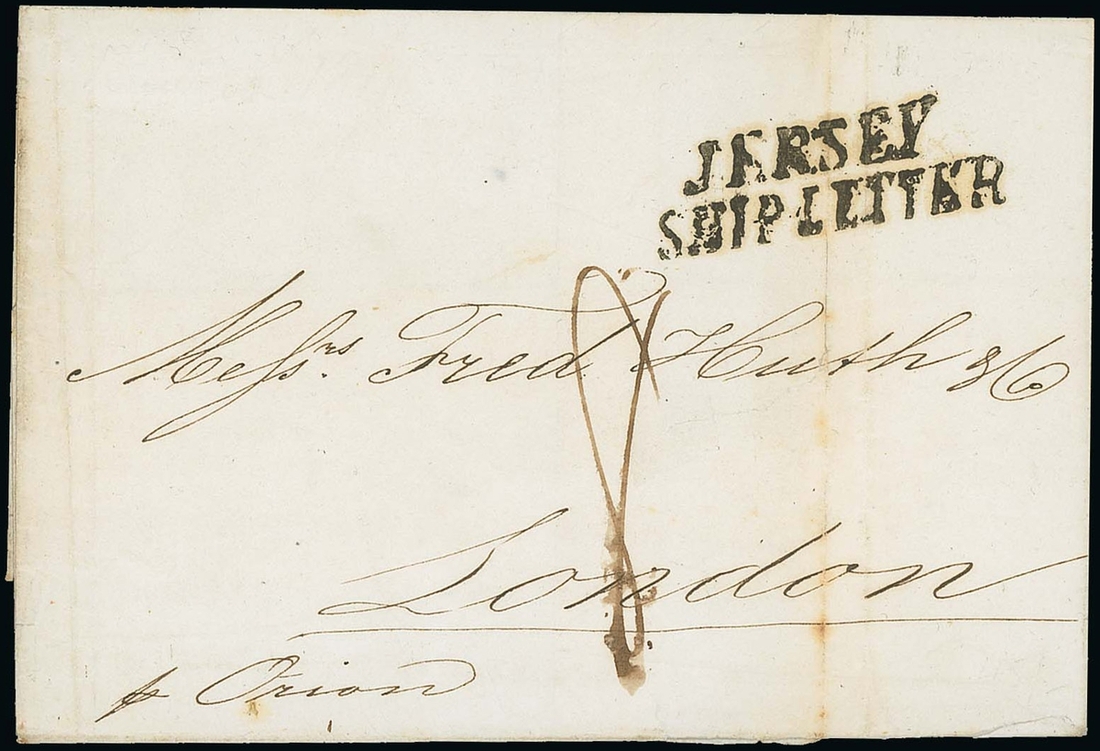 JERSEY
SHIP LETTER
Messrs. Fred Huth & Co
8
London
p Orion